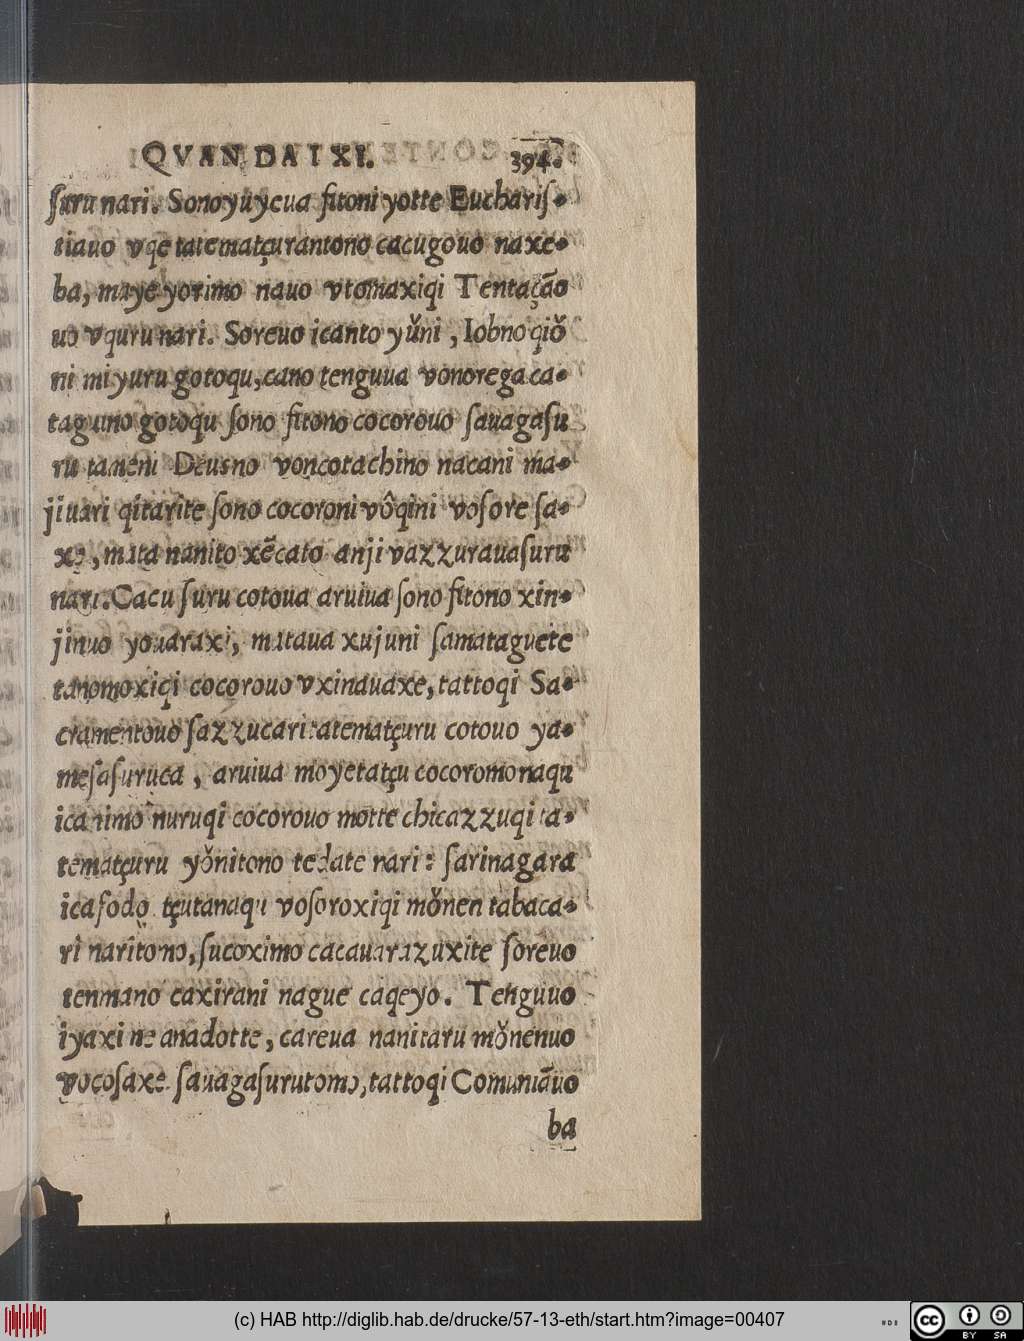 QVAN DAI XI. 394.
ſuru nari. Sono yuyeua fitoni yotte Euchariſ-
tiauo vqe tatematçurantono cacugouo naxe-
ba, maye yorimo nauo vtomaxiqi Tentação
uo vquru nari. Soreuo icanto yǔni, Iobno qiǒ
ni miyuru gotoqu, cano tenguua vonorega ca-
taguino gotoqu ſono fitono cocorouo ſauagaſu
ru tameni Deusno voncotachino nacani ma-
jiuari qitarite ſono cocoroni vôqini voſore ſa-
xe, mata nanito xẽcato anji vazzurauaſuru
nari. Cacu ſuru cotoua aruiua ſono fitono xin-
jinuo youaraxi, mataua xujuni ſamataguete
tanomoxiqi cocorouo vxinauaxe, tattoqi Sa-
cramentouo ſazzucari tatematçuru cotouo ya-
meſaſuruca, aruiua moyetatçu cocoromo naqu
icanimo nuruqi cocorouo motte chicazzuqi ta-
tematçuru yǒnitono tedate nari: ſarinagara
icafodo tçutanaqu voſoroxiqi mǒnen tabaca-
ri naritomo, ſucoximo cacauarazuxite ſoreuo
tenmano caxirani nague caqeyo. Tenguuo
iyaxime anadotte, careua nanitaru mǒnenuo
vocoſaxe ſauagaſurutomo, tattoqi Comuniãuo
ba
(c) HAB http://diglib.hab.de/drucke/57-13-eth/start.htm?image=00407
cc BY SA